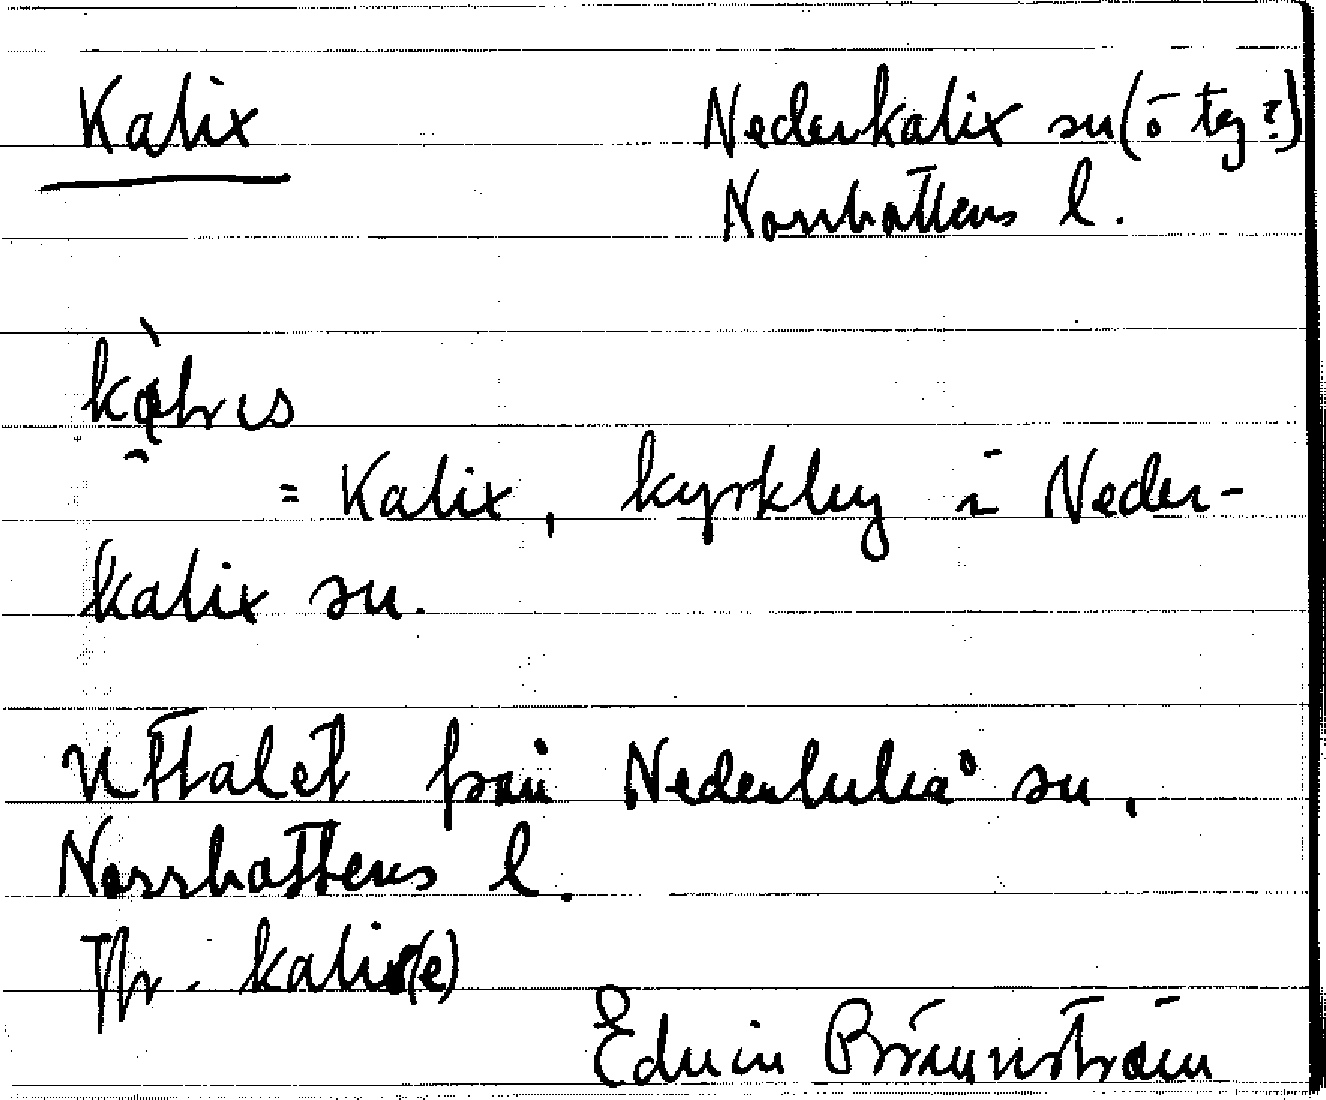 Kalix
Nederkalix sn (ö tg?)
Norrbottens l.
= Kalix, kyrkby i Neder-
kalix sn.
Uttalet från Nederluleå sn,
Norrbottens l.
Jfr. kalix(e)
Edvin Brännström